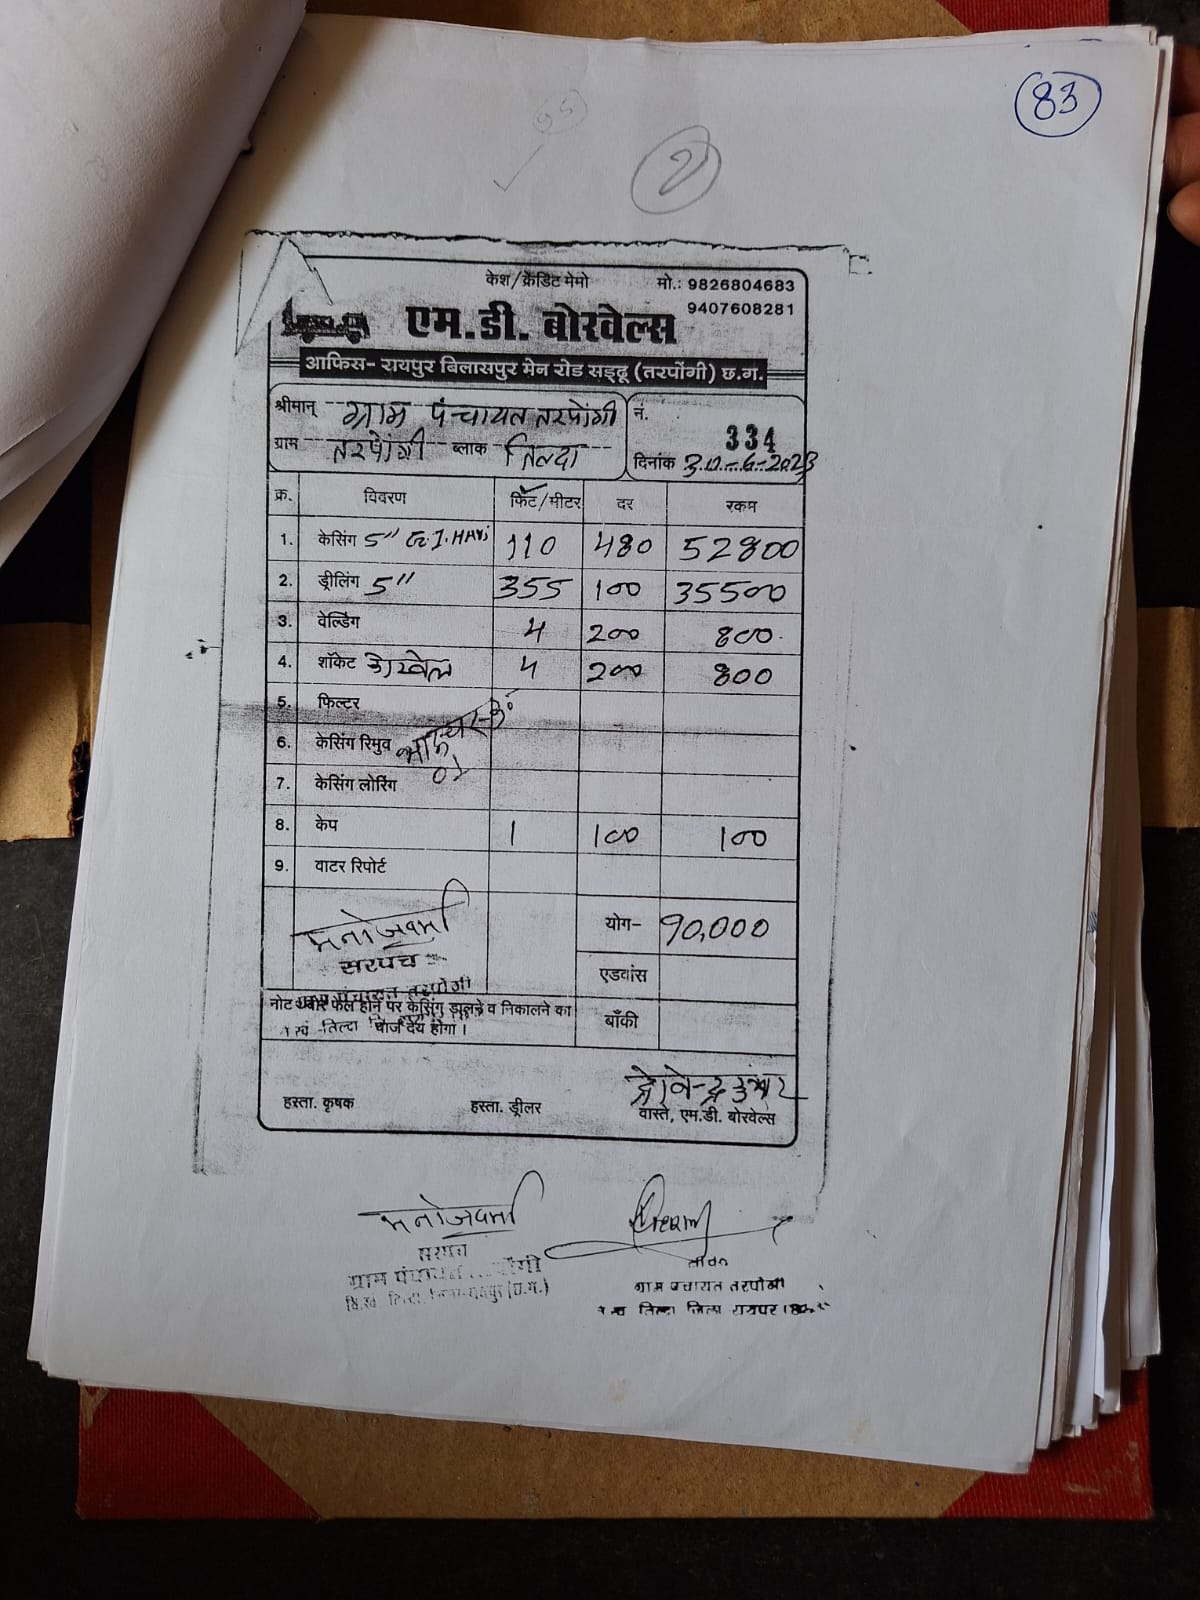 83
2
केश/क्रेडिट मेमो
मो.: 9826804683
9407608281
एम.डी. बोरवेल्स
आफिस- रायपुर बिलासपुर मेन रोड सड्ढू (तरपोंगी) छ.ग.
श्रीमान् ग्राम पंचायत तरपोंगी
ग्राम तरपोंगी ब्लाक तिल्दा
नं. 334
दिनांक 30-6-2023
क्र. विवरण फिट/मीटर दर रकम
1. केसिंग 5" 110 480 52800
2. ड्रीलिंग 5" 355 100 35500
3. वेल्डिंग 4 200 800
4. शॉकेट 4 200 800
5. फिल्टर
6. केसिंग रिमुव
7. केसिंग लोरिंग
8. केप 1 100 100
9. वाटर रिपोर्ट
मनोज वर्मा
सरपंच
योग- 90,000
एडवांस
बाँकी
नोट फेल होने पर केसिंग डालने व निकालने का
चार्ज देय होगा।
हस्ता. कृषक
हस्ता. ड्रीलर
वास्ते, एम.डी. बोरवेल्स
मनोज वर्मा
सरपंच
ग्राम पंचायत
ग्राम पंचायत तरपोंगी